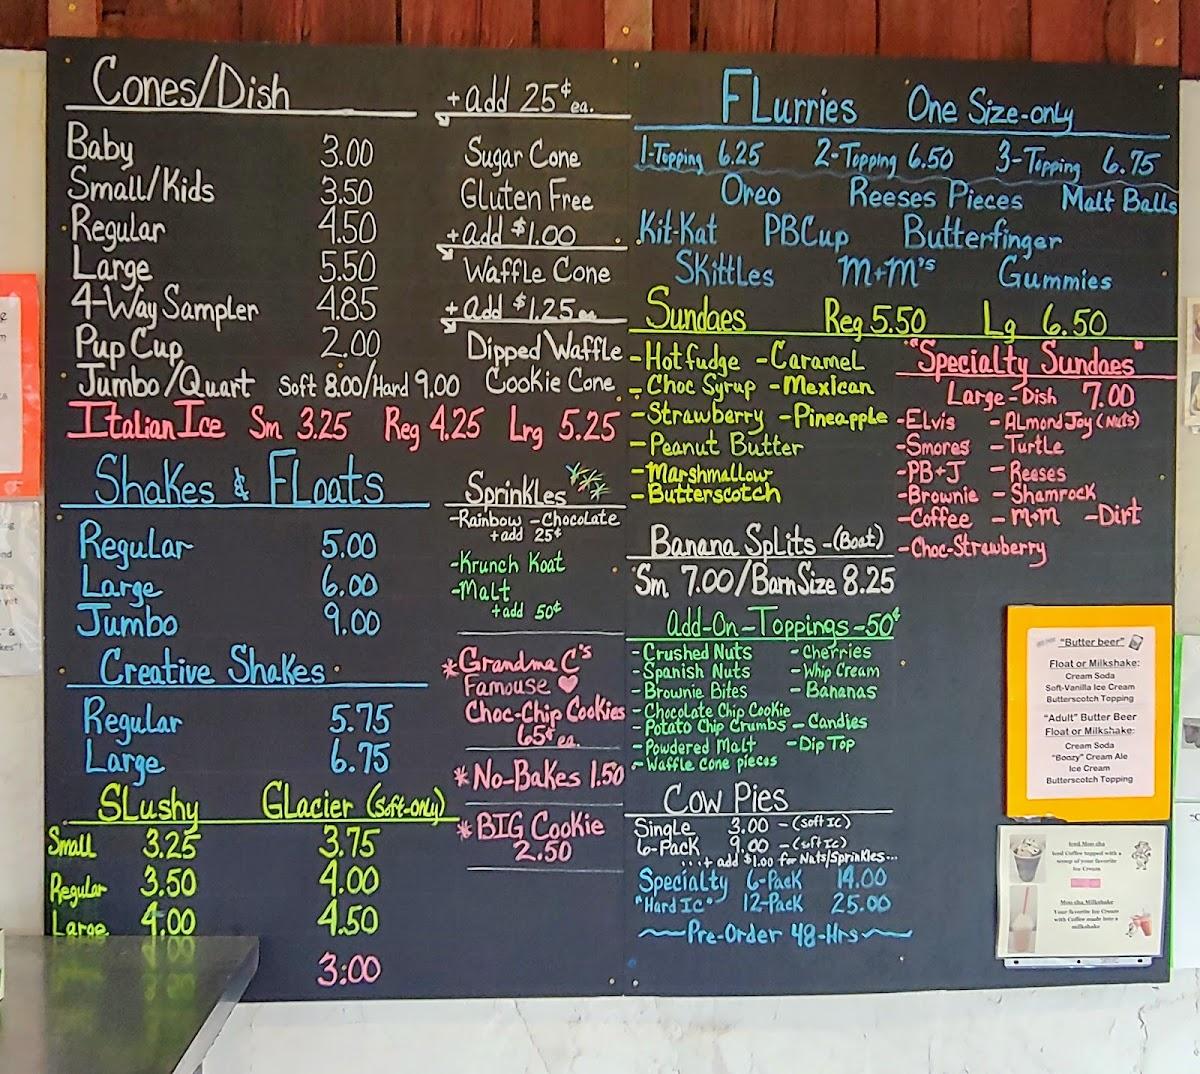 Cones/Dish
Baby 3.00
Small/Kids 3.50
Regular 4.50
Large 5.50
4-Way Sampler 4.85
Pup Cup 2.00
Jumbo/Quart Soft 8.00/Hard 9.00
+ add 25¢ ea.
Sugar Cone
Gluten Free
+ add $1.00
Waffle Cone
+ add $1.25 ea
Dipped Waffle
Cookie Cone
Italian Ice Sm 3.25 Reg 4.25 Lrg 5.25
Shakes & Floats
Regular 5.00
Large 6.00
Jumbo 9.00
Creative Shakes
Regular 5.75
Large 6.75
Slushy Glacier (Soft-only)
Small 3.25 3.75
Regular 3.50 4.00
Large 4.00 4.50
3:00
Sprinkles
-Rainbow -Chocolate
+add 25¢
-Krunch Koat
-Malt
+add 50¢
*Grandma C's
Famouse ♥
Choc-Chip Cookies
65¢ ea.
*No-Bakes 1.50
*BIG Cookie
2.50
FLurries One Size-only
1-Topping 6.25 2-Topping 6.50 3-Topping 6.75
Oreo Reeses Pieces Malt Balls
Kit-Kat PBCup Butterfinger
Skittles M+M's Gummies
Sundaes Reg 5.50 Lg 6.50
-Hotfudge -Caramel
-Choc Syrup -Mexican
-Strawberry -Pineapple
-Peanut Butter
-Marshmallow
-Butterscotch
"Specialty Sundaes"
Large-Dish 7.00
-Elvis -Almond Joy (Nuts)
-Smores -Turtle
-PB+J -Reeses
-Brownie -Shamrock
-Coffee -M+M -Dirt
-Choc-Strawberry
Banana Splits -(Boat)
Sm 7.00/Barn Size 8.25
Add-On-Toppings-50¢
-Crushed Nuts -Cherries
-Spanish Nuts -Whip Cream
-Brownie Bites -Bananas
-Chocolate Chip Cookie
-Potato Chip Crumbs -Candies
-Powdered Malt -Dip Top
-Waffle cone pieces
Cow Pies
Single 3.00 -(soft IC)
6-Pack 9.00 -(soft IC)
...+ add $1.00 for Nuts/Sprinkles...
Specialty 6-Pack 14.00
"Hard IC" 12-Pack 25.00
~Pre-Order 48-Hrs~
"Butter beer"
Float or Milkshake:
Cream Soda
Soft-Vanilla Ice Cream
Butterscotch Topping
"Adult" Butter Beer
Float or Milkshake:
Cream Soda
"Boozy" Cream Ale
Ice Cream
Butterscotch Topping
Iced Moo-cha
Iced Coffee topped with a
scoop of your favorite
Ice Cream
Moo-cha Milkshake
Your favorite Ice Cream
with Coffee made into a
milkshake